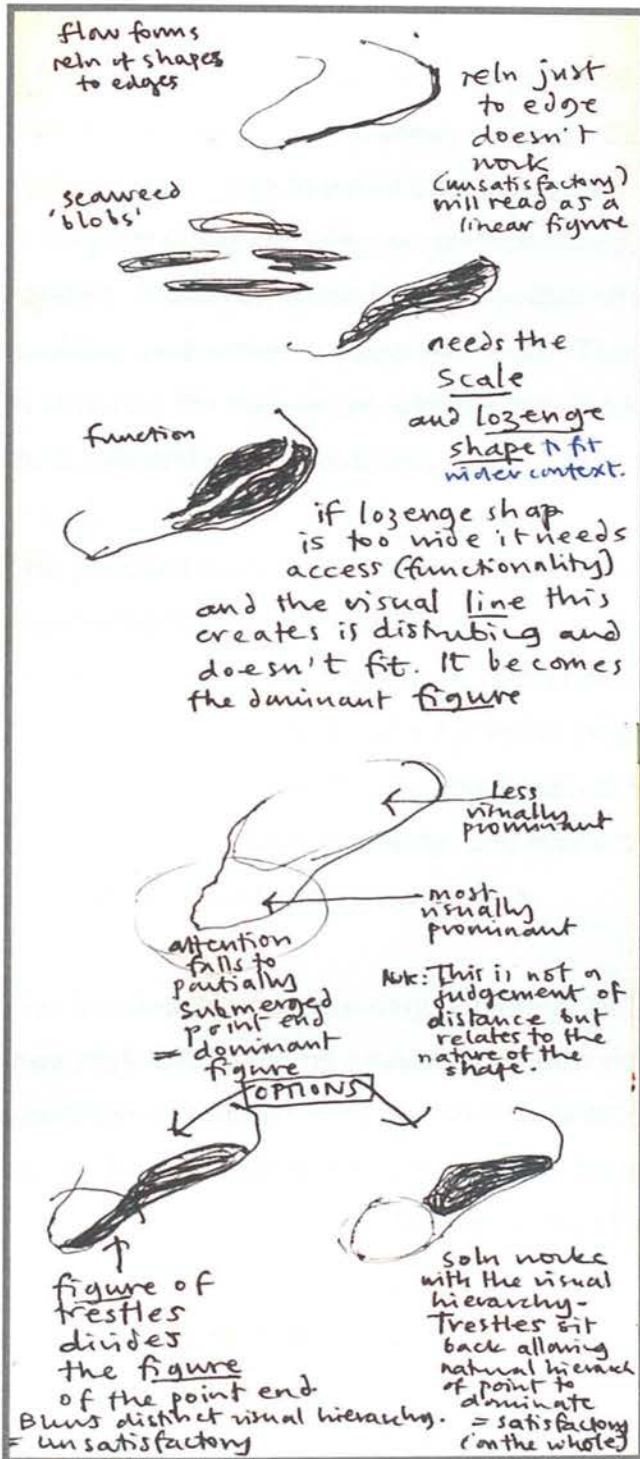 flow forms
reln of shapes
to edges
reln just
to edge
doesn't
work
(unsatisfactory)
will read as a
linear figure
seaweed
'blobs'
needs the
scale
and lozenge
shape to fit
wider context.
function
if lozenge shap
is too wide it needs
access (functionality)
and the visual line this
creates is distrubing and
doesn't fit. It becomes
the dominant figure
Less
visually
prominant
most
visually
prominant
attention
falls to
partially
submerged
point end
= dominant
figure
Note: This is not a
judgement of
distance but
relates to the
nature of the
shape.
OPTIONS
figure of
trestles
divides
the figure
of the point end
Blurs distinct visual hierarchy.
= unsatisfactory
soln works
with the visual
hierarchy-
Trestles sit
back allowing
natural hierarch
of point to
dominate
= satisfactory
(on the whole)